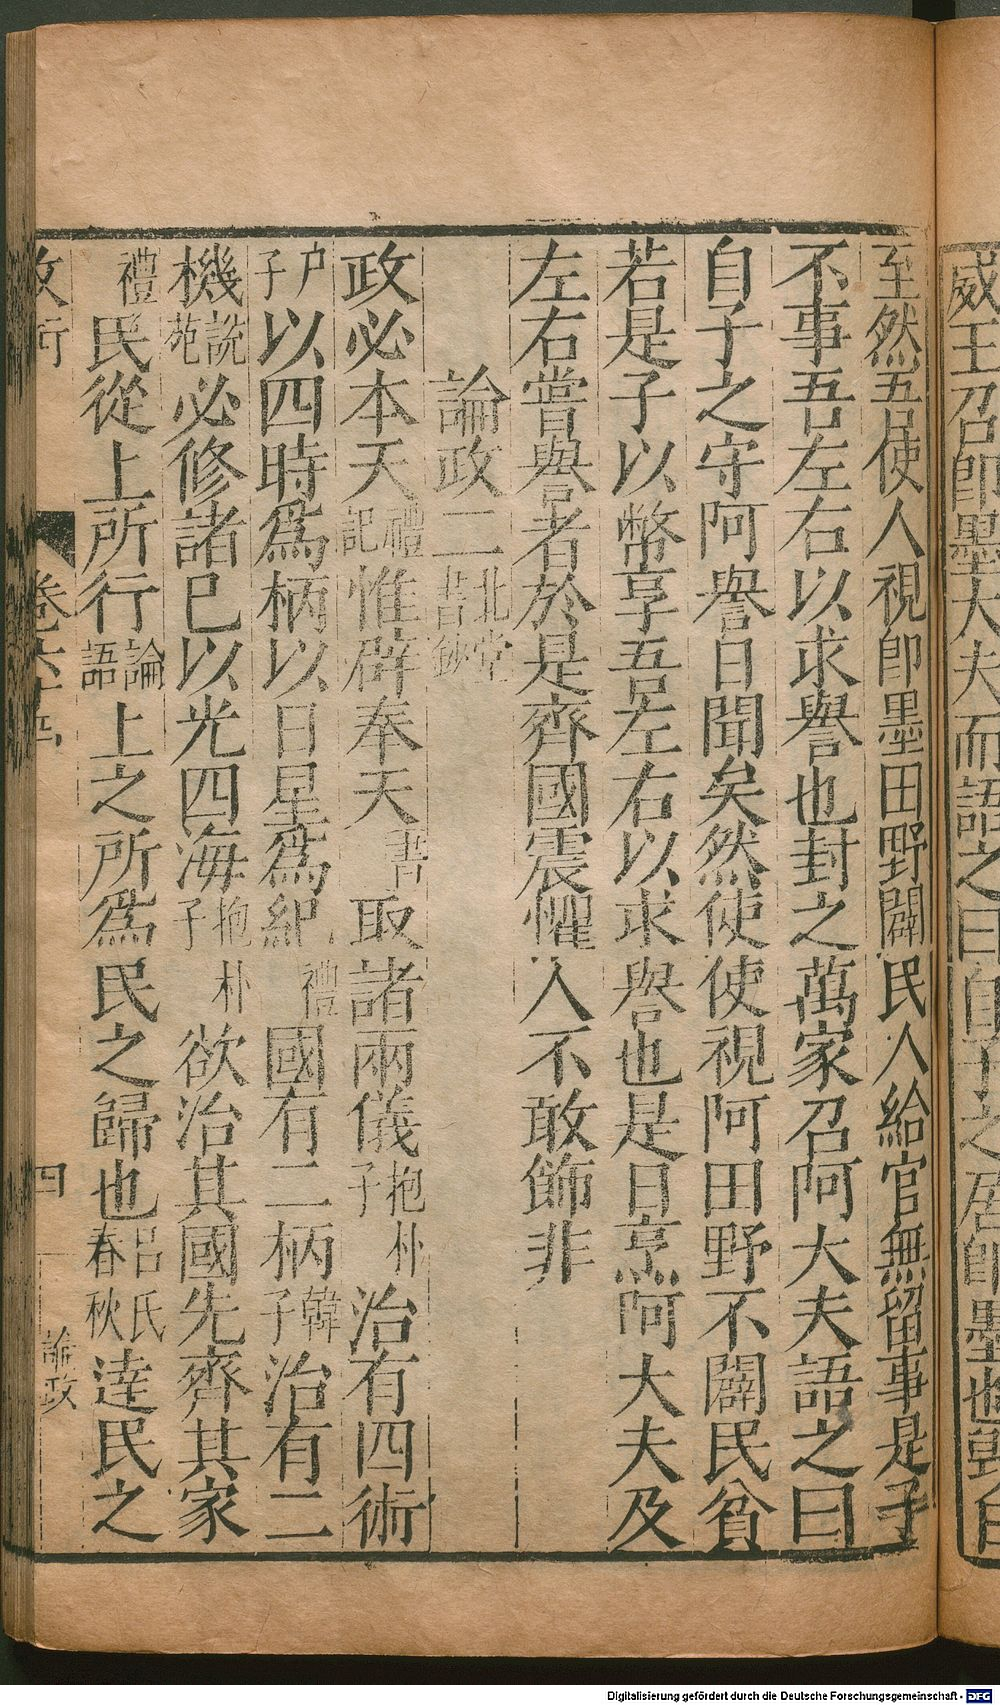 威王召卽墨大夫而語之曰自子之居卽墨也毀日
至然吾使人視卽墨田野闢民人給官無留事是子
不事吾左右以求譽也封之萬家召阿大夫語之曰
自子之守阿譽日聞矣然使使視阿田野不闢民貧
若是子以幣享吾左右以求譽也是日烹阿大夫及
左右嘗譽者於是齊國震懼人不敢飾非
論政二北堂書鈔
政必本天禮記惟辟奉天書取諸兩儀抱朴子治有四術
尸子以四時爲柄以日星爲紀禮國有二柄韓子治有二
機說苑必修諸已以光四海抱朴子欲治其國先齊其家
禮民從上所行論語上之所爲民之歸也呂氏春秋達民之
卷六十四
四
論政
Digitalisierung gefördert durch die Deutsche Forschungsgemeinschaft - DFG